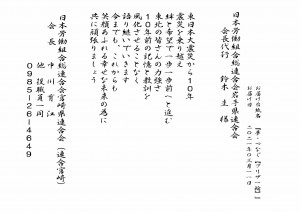 日本労働組合総連合会岩手県連合会
会長代行　鈴木　圭　様
お届け台紙名　【夢・つなぐ「プリザ一輪」】
お届け日　二〇二一年〇三月一一日
東日本大震災から10年
震災を乗り越え
絆と希望で一歩一歩前へと進む
東北の皆さんの力強さ
10年前の記憶と教訓を
風化させることなく
語り継いでいきます
今までも、これからも
笑顔あふれる幸せな未来の為に
共に頑張りましょう
日本労働組合総連合会宮崎県連合会（連合宮崎）
会長　中川　育江
他　役職員一同
0985-26-4649